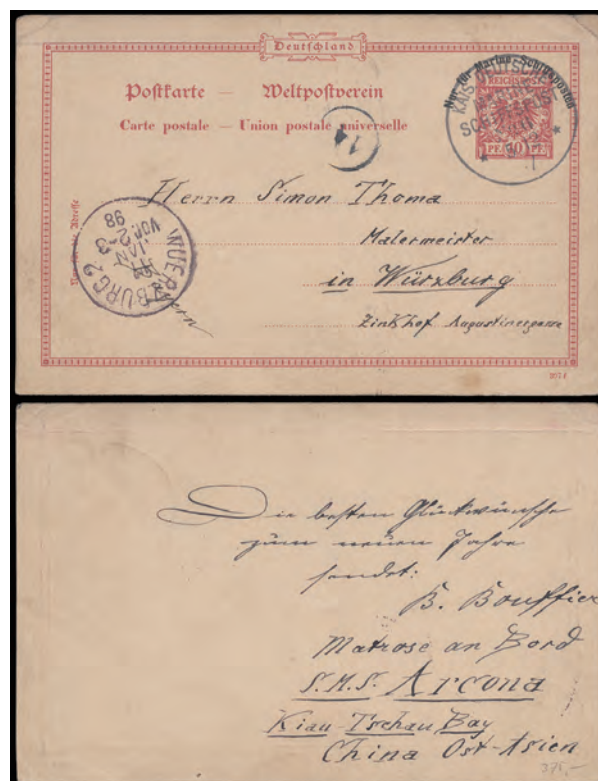 Deutschland
Postkarte — Weltpostverein
Carte postale — Union postale universelle
Nur für Marine-Schiffsposten
REICHSPOST
KAIS. DEUTSCHE
MARINE
SCHIFFSPOST
PF. 10 PF.
Herrn Simon Thoma
Malermeister
in Würzburg
Zinkhof Augustinergasse
Bayern
WUERZBURG 2
JAN
VOR. 2-3
98
Die besten Glückwünsche
zum neuen Jahre
sendet:
B. Bouffier
Matrose an Bord
S.M.S. Arcona
Kiau-Tschau Bay
China Ost-Asien
375,-